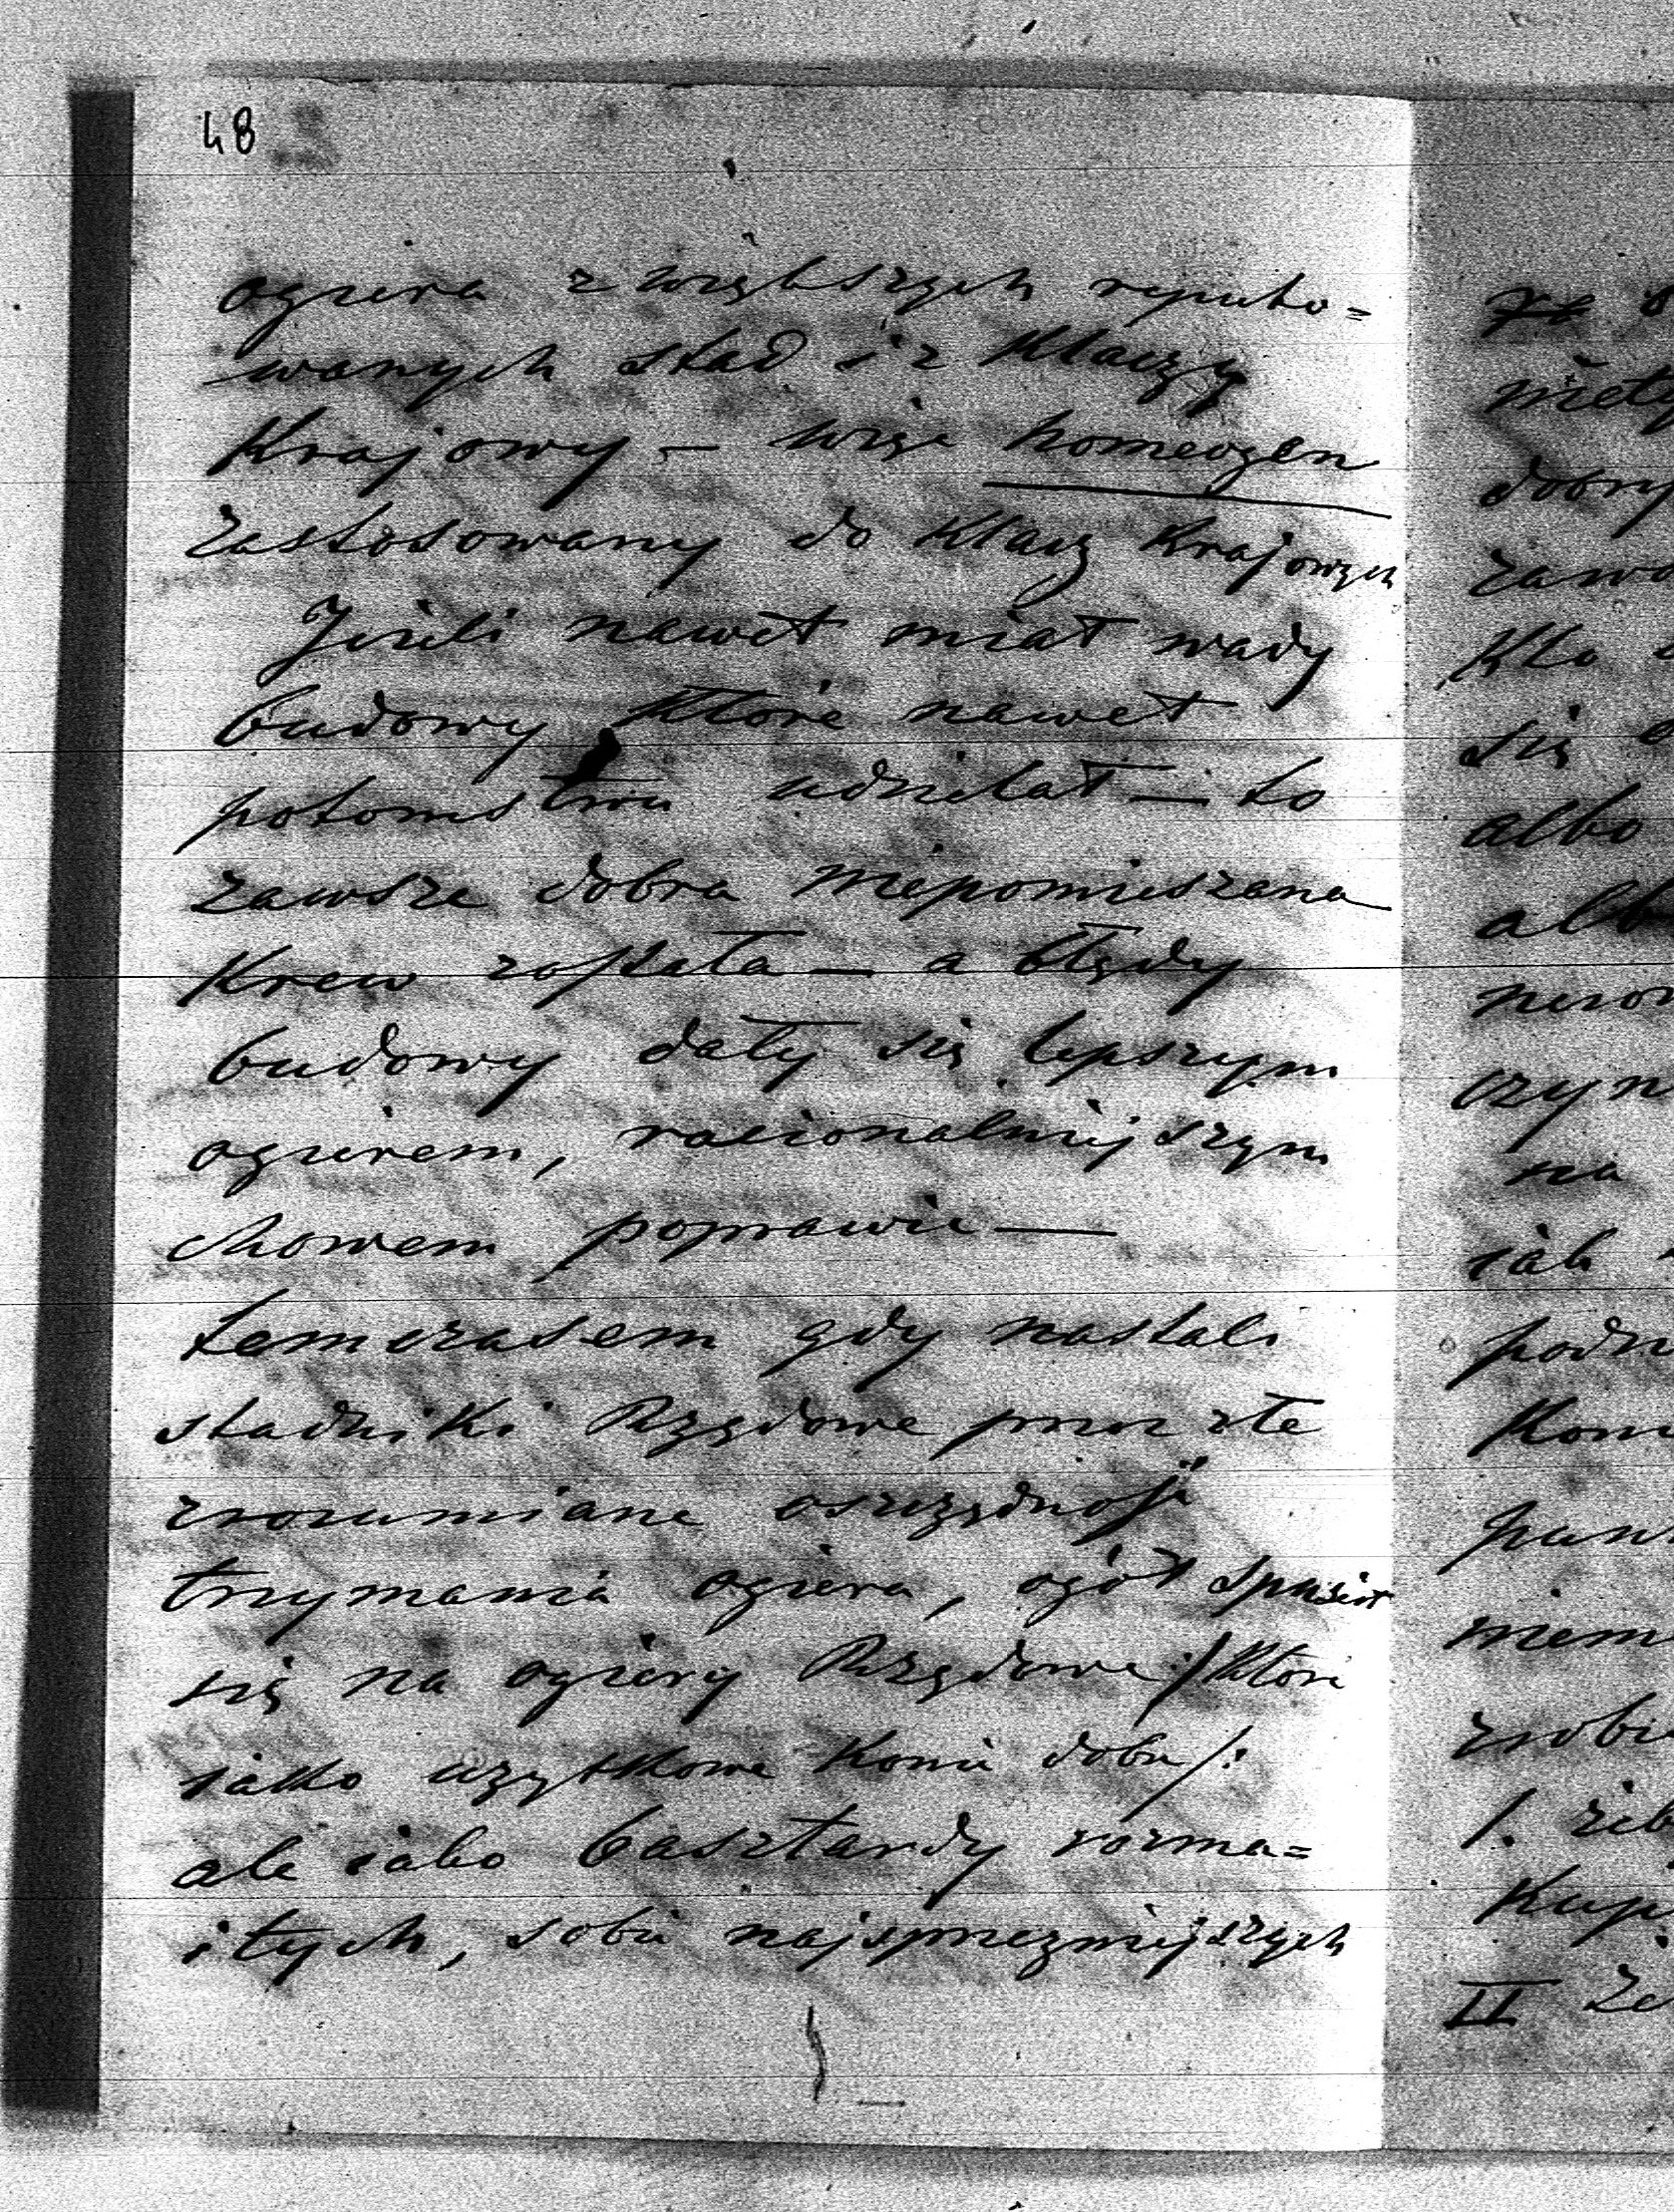 48
ogiera z większych reputo=
wanych stad i z Klaczy
Krajowy – więc homeogen
zastosowany do Klacz Krajowych
Jeżeli nawet miał wady
budowy które nawet
potomstwu udzielał – to
zawsze dobra niepomieszana
Krew została – a błędy
budowy dały się lepszym
ogierem, racionalniejszym
chowem poprawić –
temczasem gdy nastali
stadniki Rządowe przez złe
zrozumiane oszczędność
trzymania ogiera, ogół spuścił
się na ogiery Rządowe /: Które
iako użytkowe Konie dobre /:
ale iako basztardy rozma=
itych, sobie najsprzeczniejszych
mety
dobry
zawo
Kto
się
albo
alb
czyn
na
iak
podn
niem
zrobi
1. żeb
Kupi
II